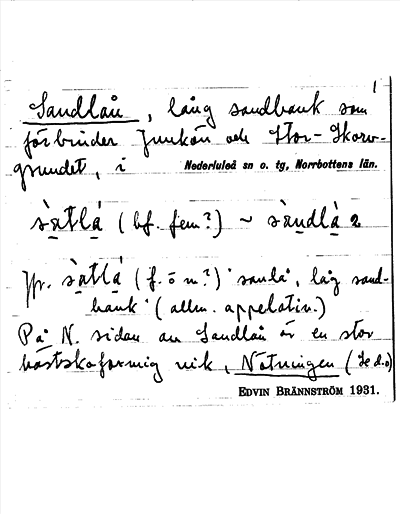 1
Sandlån, lång sandbank som
förbinder Junkön och Stor-Skorv-
grundet, i Nederluleå sn o. tg, Norrbottens län.
sàtlá (bf. fem?) ~ sàndlà 2
Jfr. sàtlá (f. ö m.?) 'sanlå', låg sand-
bank' (allm. appelativ.)
På N. sidan av Sandlån är en stor
hästskoformig vik, Notningen (se d.o)
EDVIN BRÄNNSTRÖM 1931.